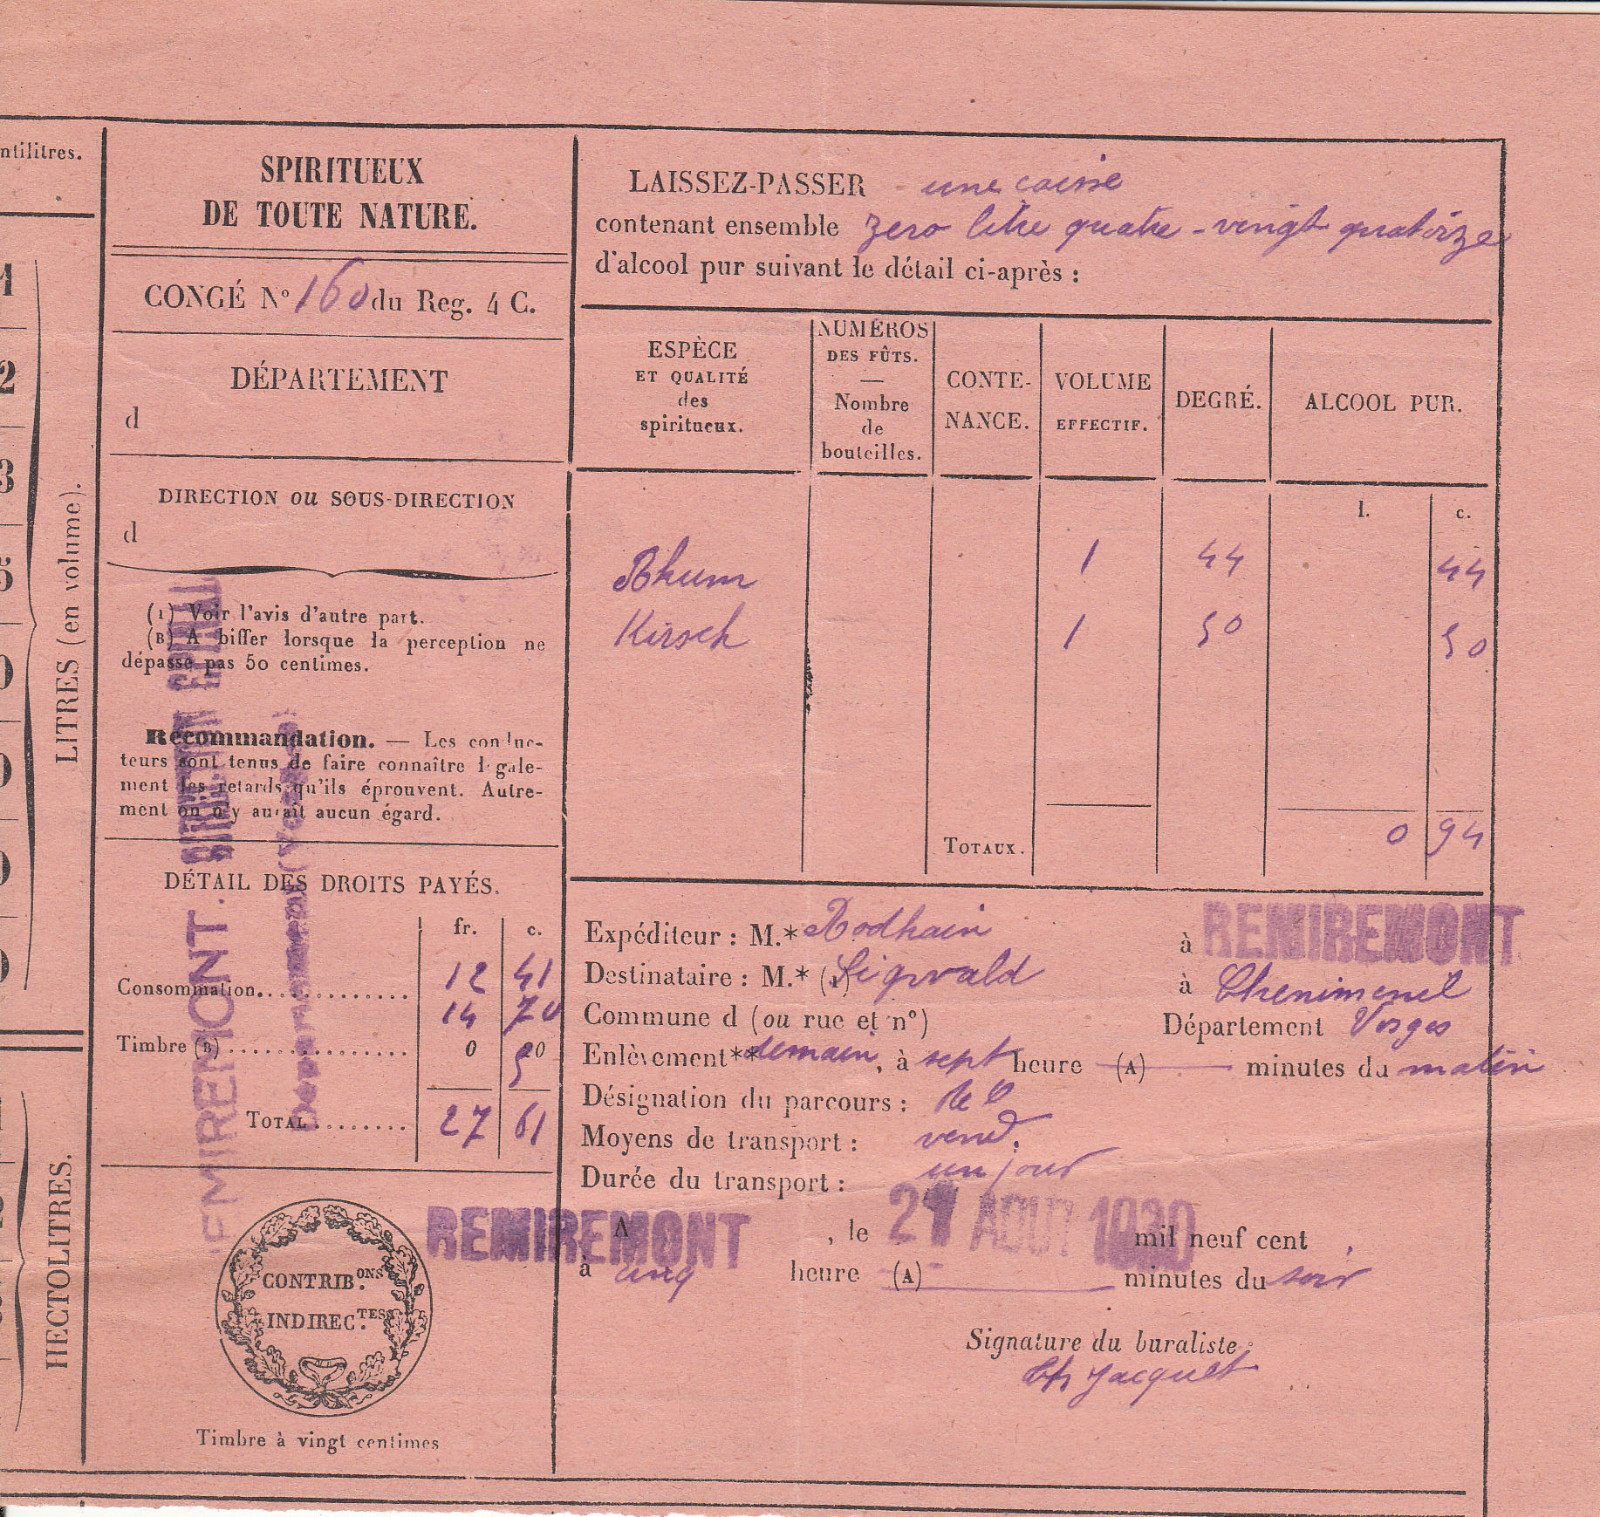 ntilitres.
1
2
3
5
0
0
0
0
LITRES (en volume).
HECTOLITRES.
SPIRITUEUX
DE TOUTE NATURE.
CONGÉ N° 160 du Reg. 4 C.
DÉPARTEMENT
d
DIRECTION ou SOUS-DIRECTION
d
(1) Voir l'avis d'autre part.
(B) A biffer lorsque la perception ne
dépasse pas 50 centimes.
Recommandation. — Les conduc-
teurs sont tenus de faire connaître légale-
ment les retards qu'ils éprouvent. Autre-
ment on n'y aurait aucun égard.
DÉTAIL DES DROITS PAYÉS.
fr. c.
Consommation.............. 12 41
14 70
Timbre (B)................ 0 20
5
TOTAL......... 27 61
REMIREMONT.
CONTRIB.ONS
INDIREC.TES
Timbre à vingt centimes
LAISSEZ-PASSER une caisse
contenant ensemble zero litre quatre-vingt quatorze
d'alcool pur suivant le détail ci-après :
ESPÈCE
ET QUALITÉ
des
spiritueux.
NUMÉROS
DES FÛTS.
—
Nombre
de
bouteilles.
CONTE-
NANCE.
VOLUME
EFFECTIF.
DEGRÉ.
ALCOOL PUR.
l. c.
Rhum 1 44 44
Kirsch 1 50 50
TOTAUX. 0 94
Expéditeur : M.* Rodhain à REMIREMONT
Destinataire : M.* (1) Sigwald à Chenimenil
Commune d (ou rue et n°) Département Vosges
Enlèvement** demain, à sept heure (A) minutes du matin
Désignation du parcours :
Moyens de transport :
Durée du transport : un jour
A REMIREMONT, le 21 AOUT 1930 mil neuf cent
à cinq heure (A) minutes du soir
Signature du buraliste :
Ch Jacquet